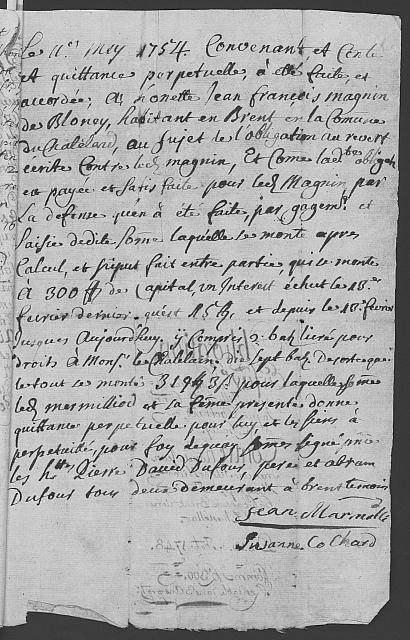 le 11.e Mey 1754. Convenant et Cente
et quittance perpetuelle, à été faite, et
accordée; A, honette Jean francois magnin
de Blonay, habitant en Brent, en la Comune
du Chatelard, au sujet de l'obligation au revert
écritte Contre led. magnin, Et Come lad.te obligaõn
est payée et satisfaite pour led. Magnin, par
La defense qu'en à été faite, par gagem.t et
saisie dedite some laquelle se monte apres
Calcul, et fait entre partie, qui se monte
à 300 ff de Capital, un Interest échut le 18.e
fevrier dernier. qu'est 15 ff, et depuis le 18.e fevrier
jusques Aujourd'huy. y Compres 2 batz livré pour
droits à Mons.r le Chatelain. dix sept batz Desorte que
le tout se monte 319 ff 3 s. pour laquelle some
led. mermilliod et sa feme presente donne
quittance perpetuelle pour luy, et les siens à
perpetuitté, pour foy dequoy
les h.ttes Pierre David Dufour, pere et abram
Dufour tous deux demeurant à brent temoins
Jean
Susanne Cochard